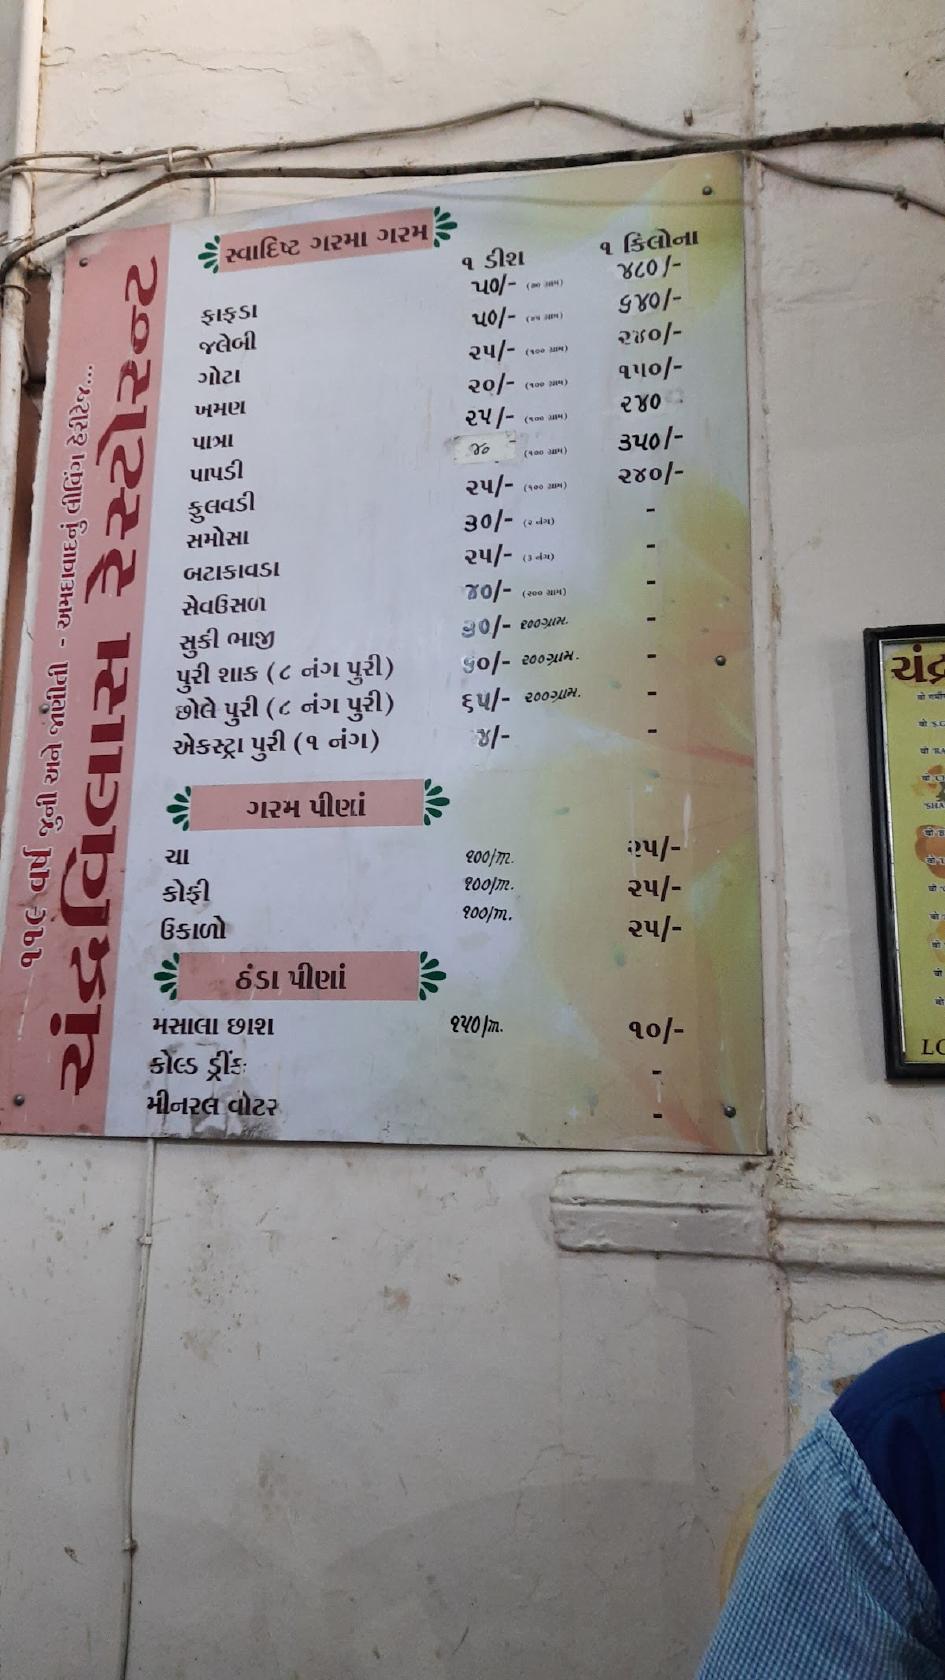 ચંદ્રવિલાસ રેસ્ટોરન્ટ
૧૧૯ વર્ષ જુની અને જાણીતી - અમદાવાદનું લીવિંગ હેરીટેજ...
સ્વાદિષ્ટ ગરમા ગરમ
૧ ડીશ ૧ કિલોના
ફાફડા ૫૦/- ૪૮૦/-
જલેબી ૫૦/- ૬૪૦/-
ગોટા ૨૫/- (૧૦૦ ગ્રામ) ૨૪૦/-
ખમણ ૨૦/- (૧૦૦ ગ્રામ) ૧૫૦/-
પાત્રા ૨૫/- (૧૦૦ ગ્રામ) ૨૪૦
પાપડી (૧૦૦ ગ્રામ) ૩૫૦/-
ફુલવડી ૨૫/- (૧૦૦ ગ્રામ) ૨૪૦/-
સમોસા ૩૦/- (૨ નંગ) -
બટાકાવડા ૨૫/- (૩ નંગ) -
સેવઉસળ ૪૦/- (૨૦૦ ગ્રામ) -
સુકી ભાજી ૨૦૦ગ્રામ. -
પુરી શાક (૮ નંગ પુરી) ૨૦૦ગ્રામ. -
છોલે પુરી (૮ નંગ પુરી) ૬૫/- ૨૦૦ગ્રામ. -
એકસ્ટ્રા પુરી (૧ નંગ) ૪/- -
ગરમ પીણાં
ચા ૧૦૦/m. ૨૫/-
કોફી ૧૦૦/m. ૨૫/-
ઉકાળો ૧૦૦/m. ૨૫/-
ઠંડા પીણાં
મસાલા છાશ ૧૫૦/m. ૧૦/-
કોલ્ડ ડ્રીંક -
મીનરલ વોટર -